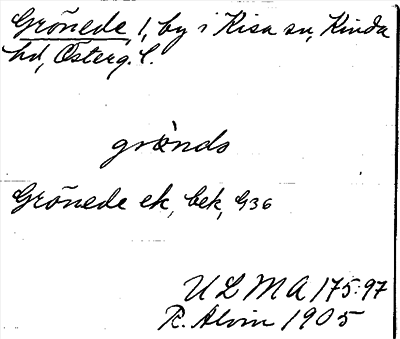 Grönede 1, by i Kisa sn, Kinda
hd, Österg. l.
grὼnds
Grönede ek, bek, G36
ULMA 175:97
R. Alvin 1905